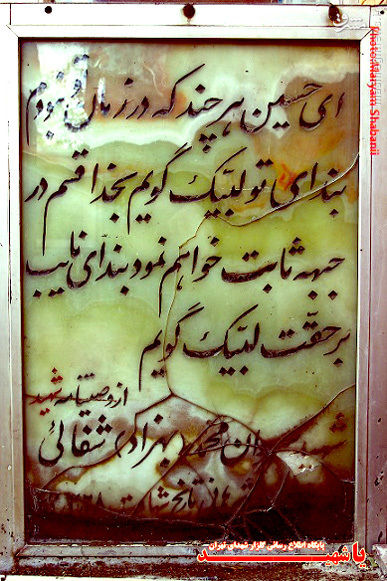 ای حسین هر چند که در زمان تو نبودم
بندای تو لبیک گویم بخدا قسم در
جبهه ثابت خواهم نمود بندای نایب
بر حقت لبیک گویم
از وصیتنامه شهید
(بهزاد) شفائی
تاریخ شهادت
پایگاه اطلاع رسانی گلزار شهدای تهران
یا شهید
Photo:Maryam Shabani